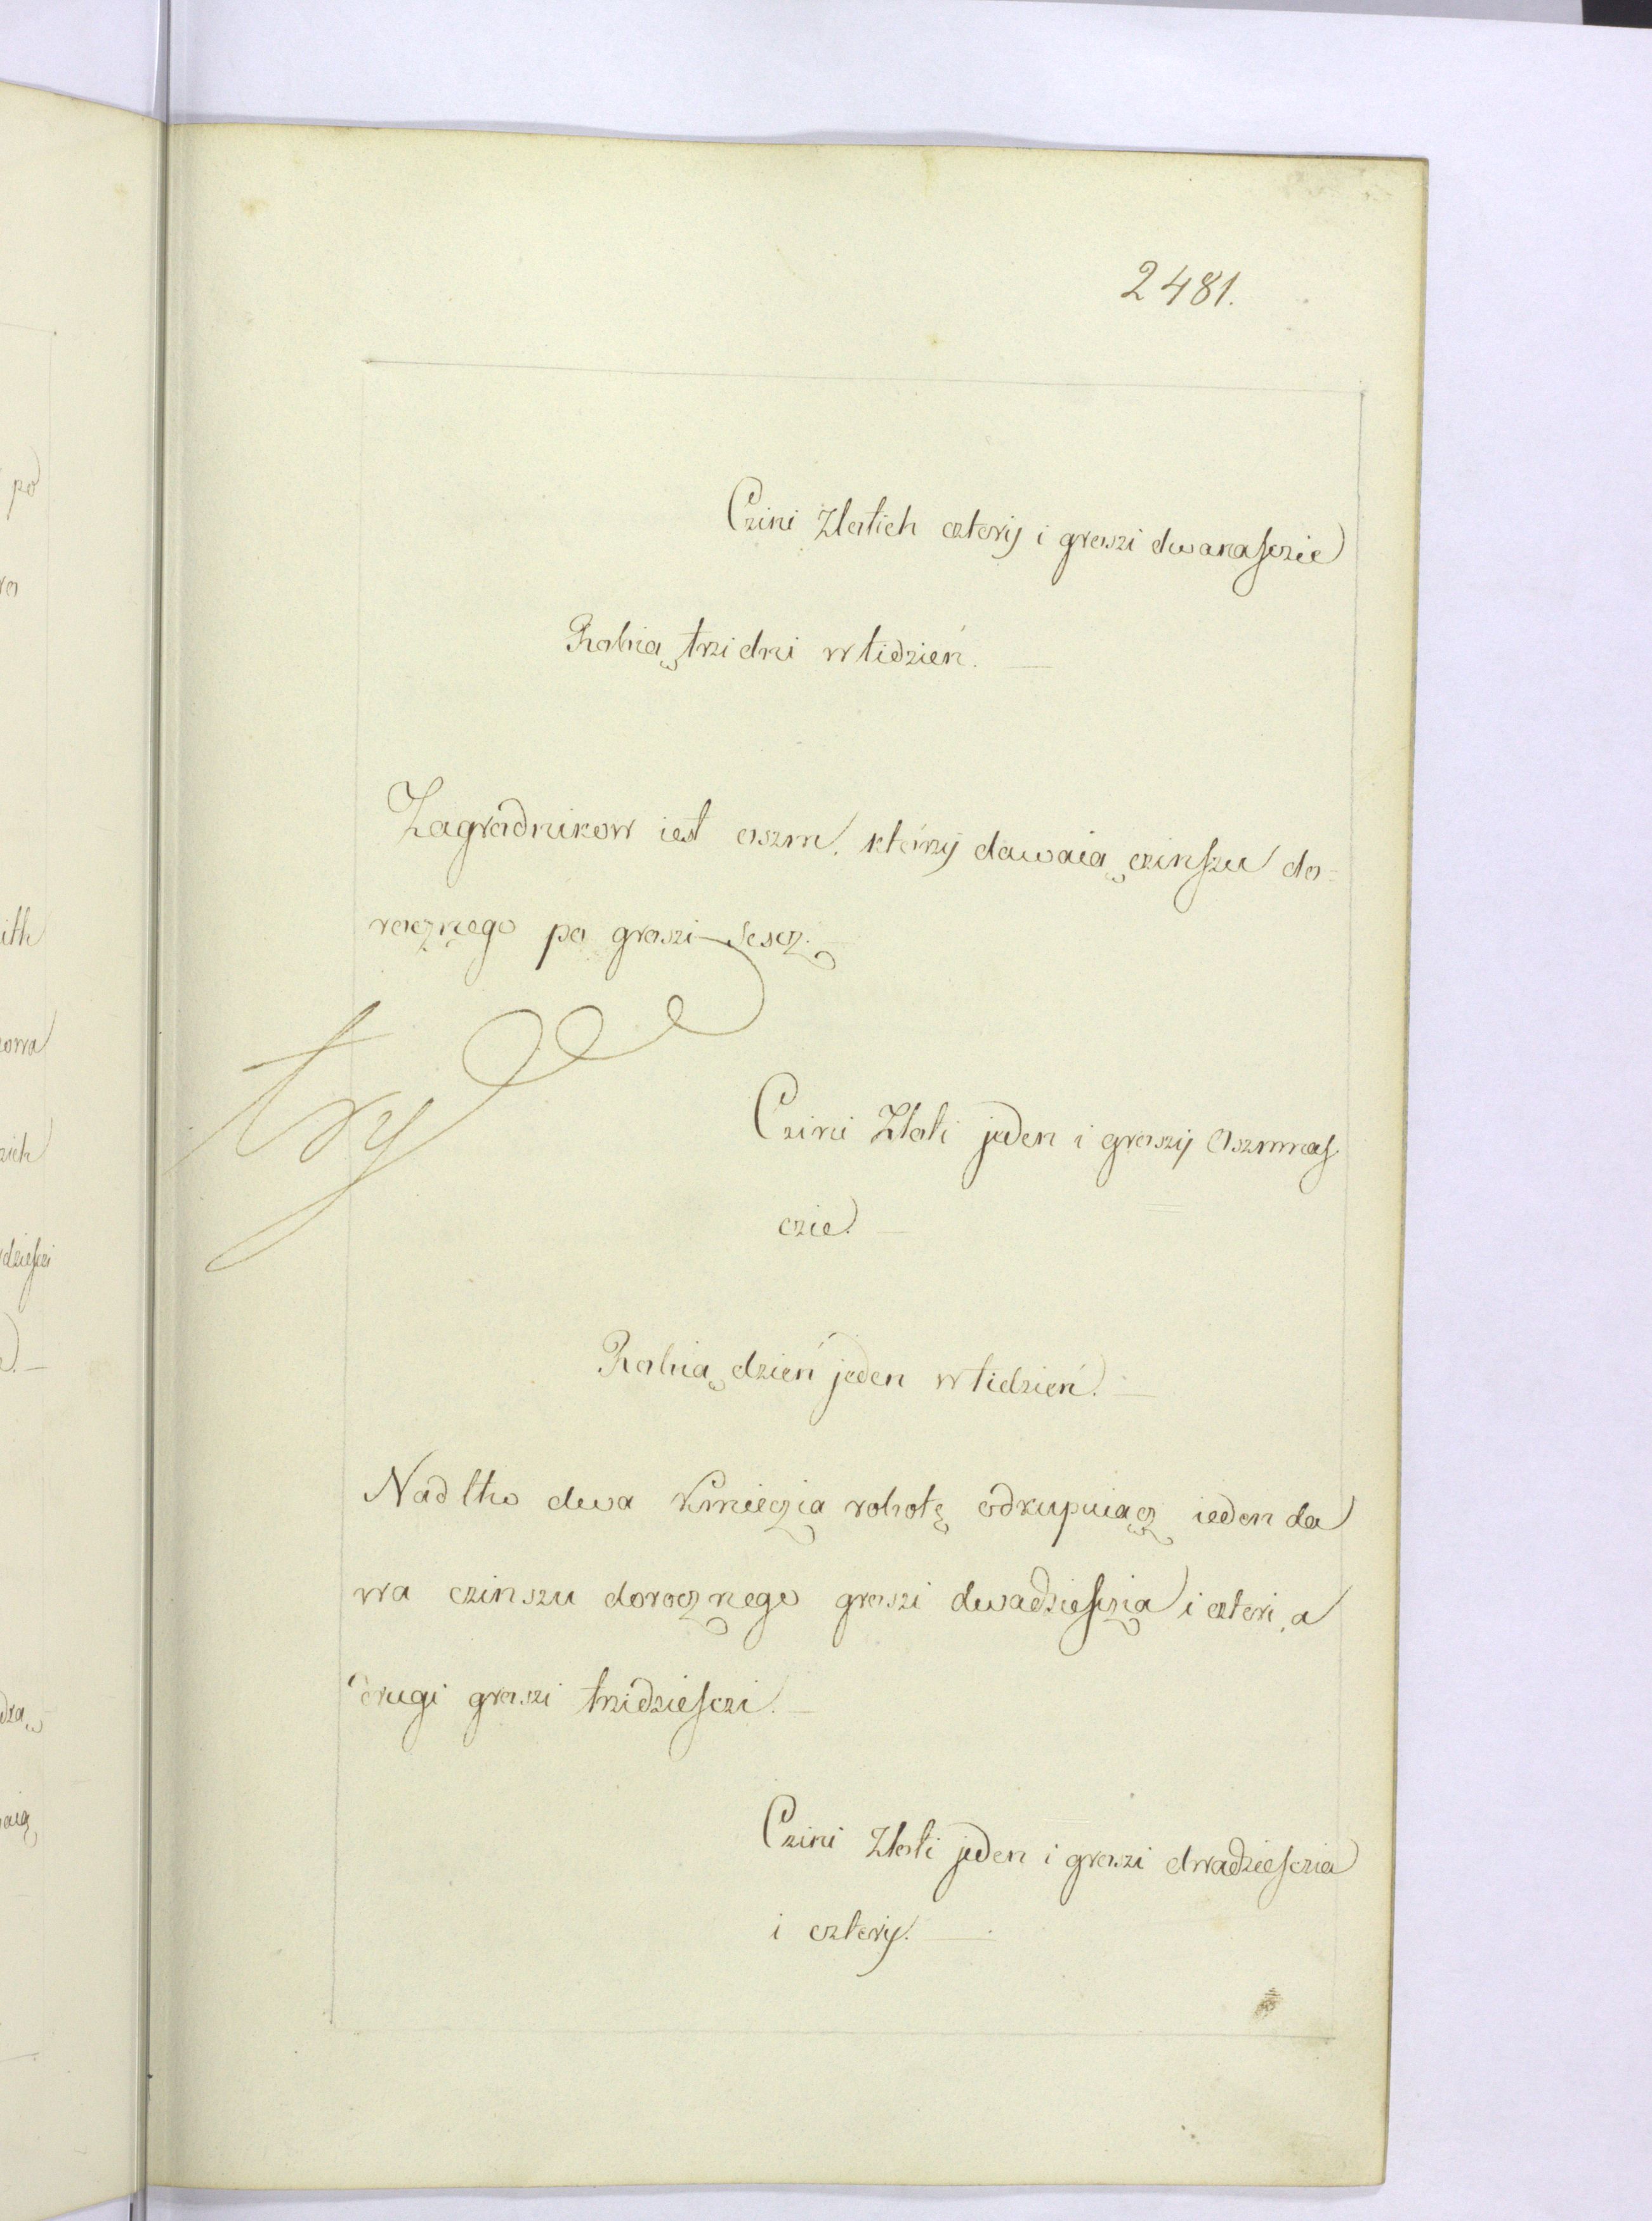 2481.
Czini Złotich cztery i groszi dwanasczie
Robią trzi dni w tidzień. —
Zagrodnikow iest oszm. którzy dawaią czinszu do-
rocznego po groszi sescz.
Czini Złoti jeden i groszy Oszmnas
czie. —
Robią dzień jeden w tidzień. —
Nad tho dwa Kmieczia robotę odkupuiącz ieden da
wa czinszu dorocznego groszi dwadziesczia i czteri, a
drugi groszi trzidziesczi. —
Czini Złoti jeden i groszi dwadziesczia
i cztery. —
po
ith
owa
zich
dziesczi
aią